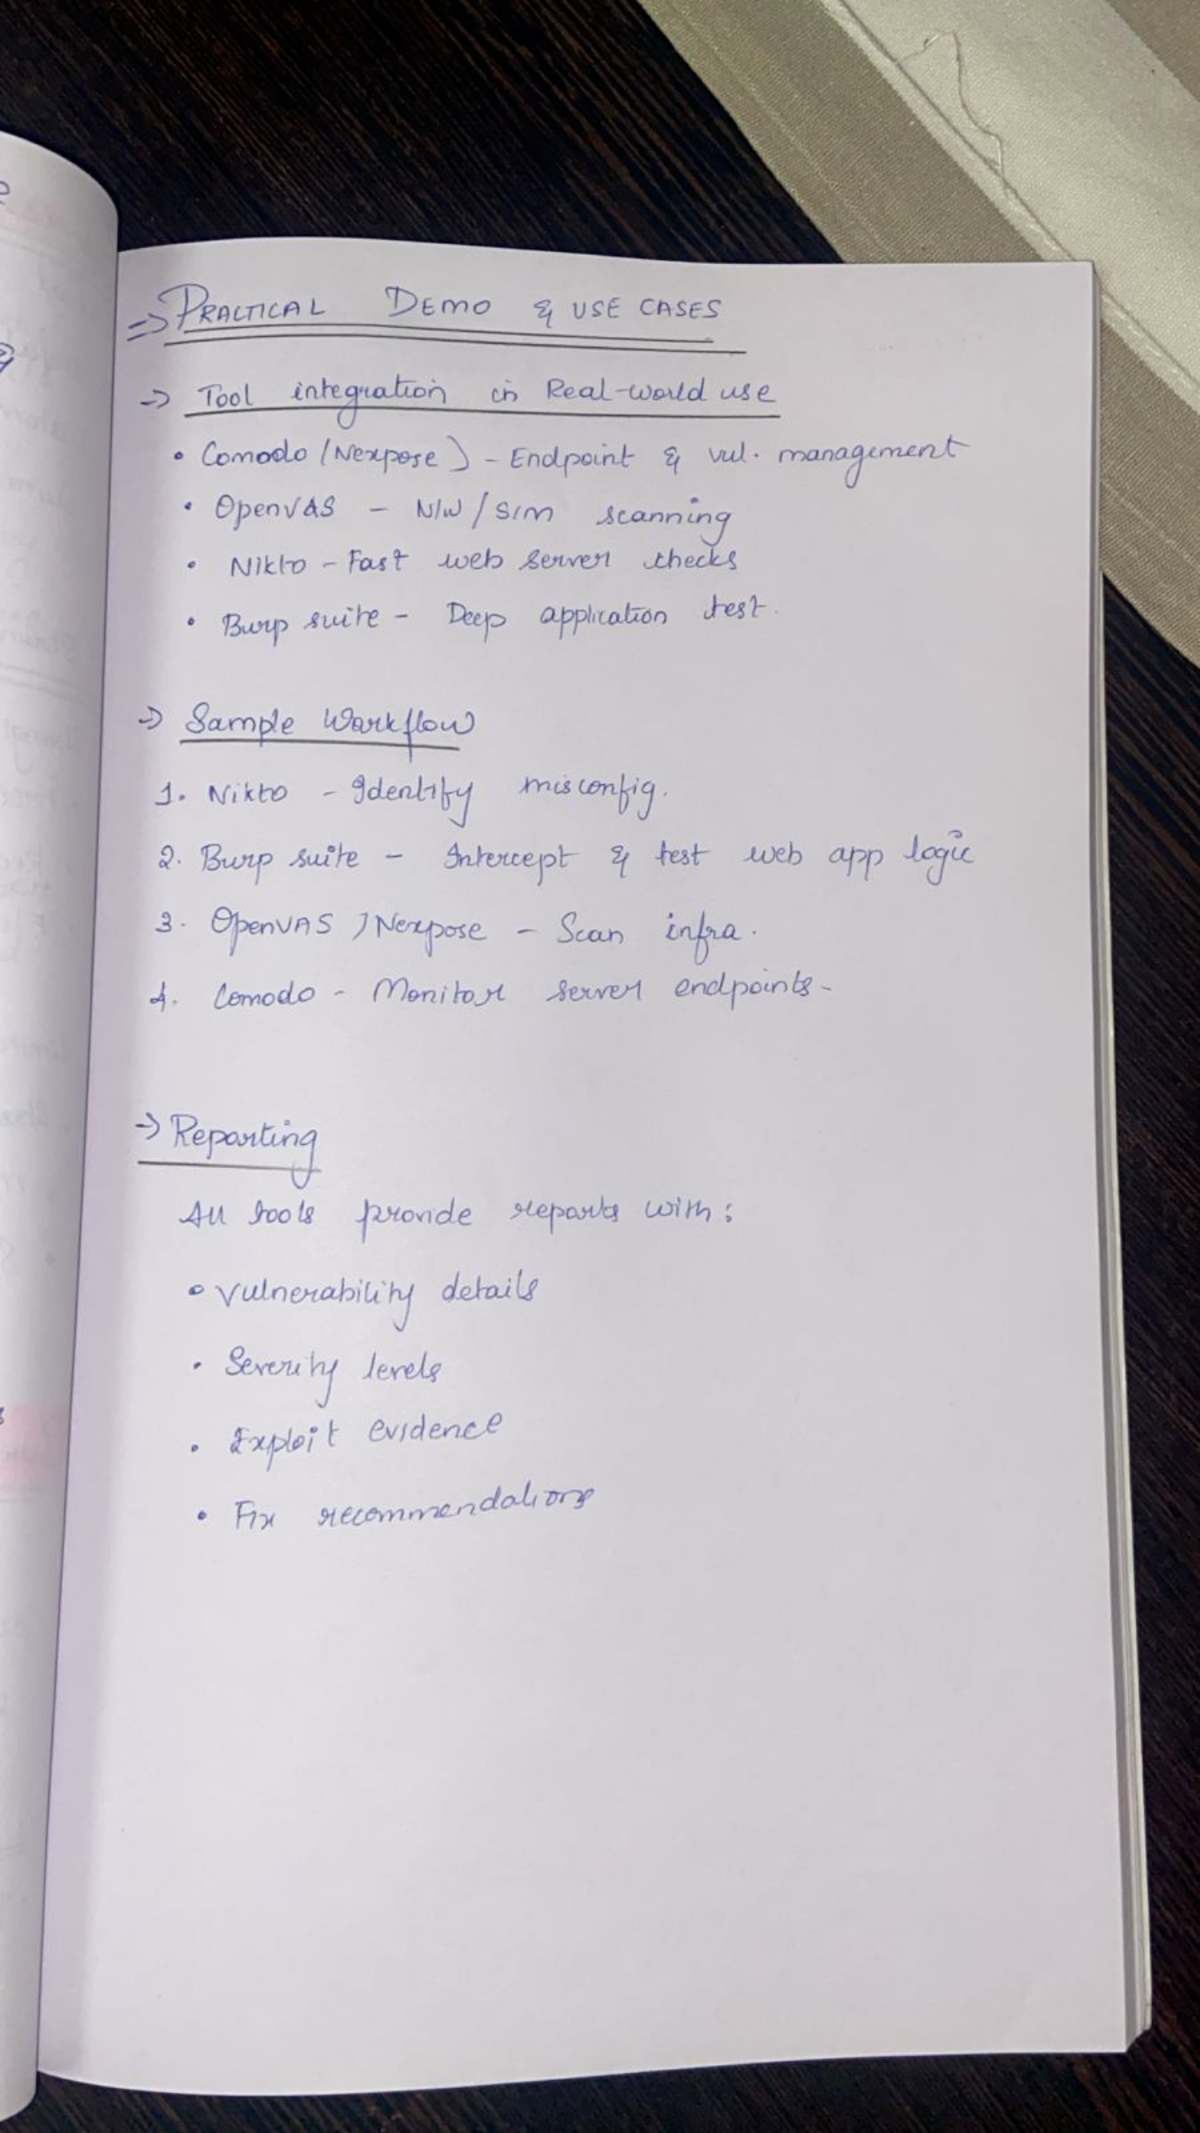 ⇒ PRACTICAL DEMO & USE CASES
→ Tool integration in Real-world use
• Comodo (Nexpose) - Endpoint & vul. management
• OpenVAS - N/W / S/m scanning
• Nikto - Fast web server checks
• Burp suite - Deep application test.
→ Sample Workflow
1. Nikto - Identify misconfig.
2. Burp suite - Intercept & test web app logic
3. OpenVAS / Nexpose - Scan infra.
4. Comodo - Monitor server endpoints -
→ Reporting
All tools provide reports with:
• Vulnerability details
• Severity levels
• Exploit evidence
• Fix recommendations